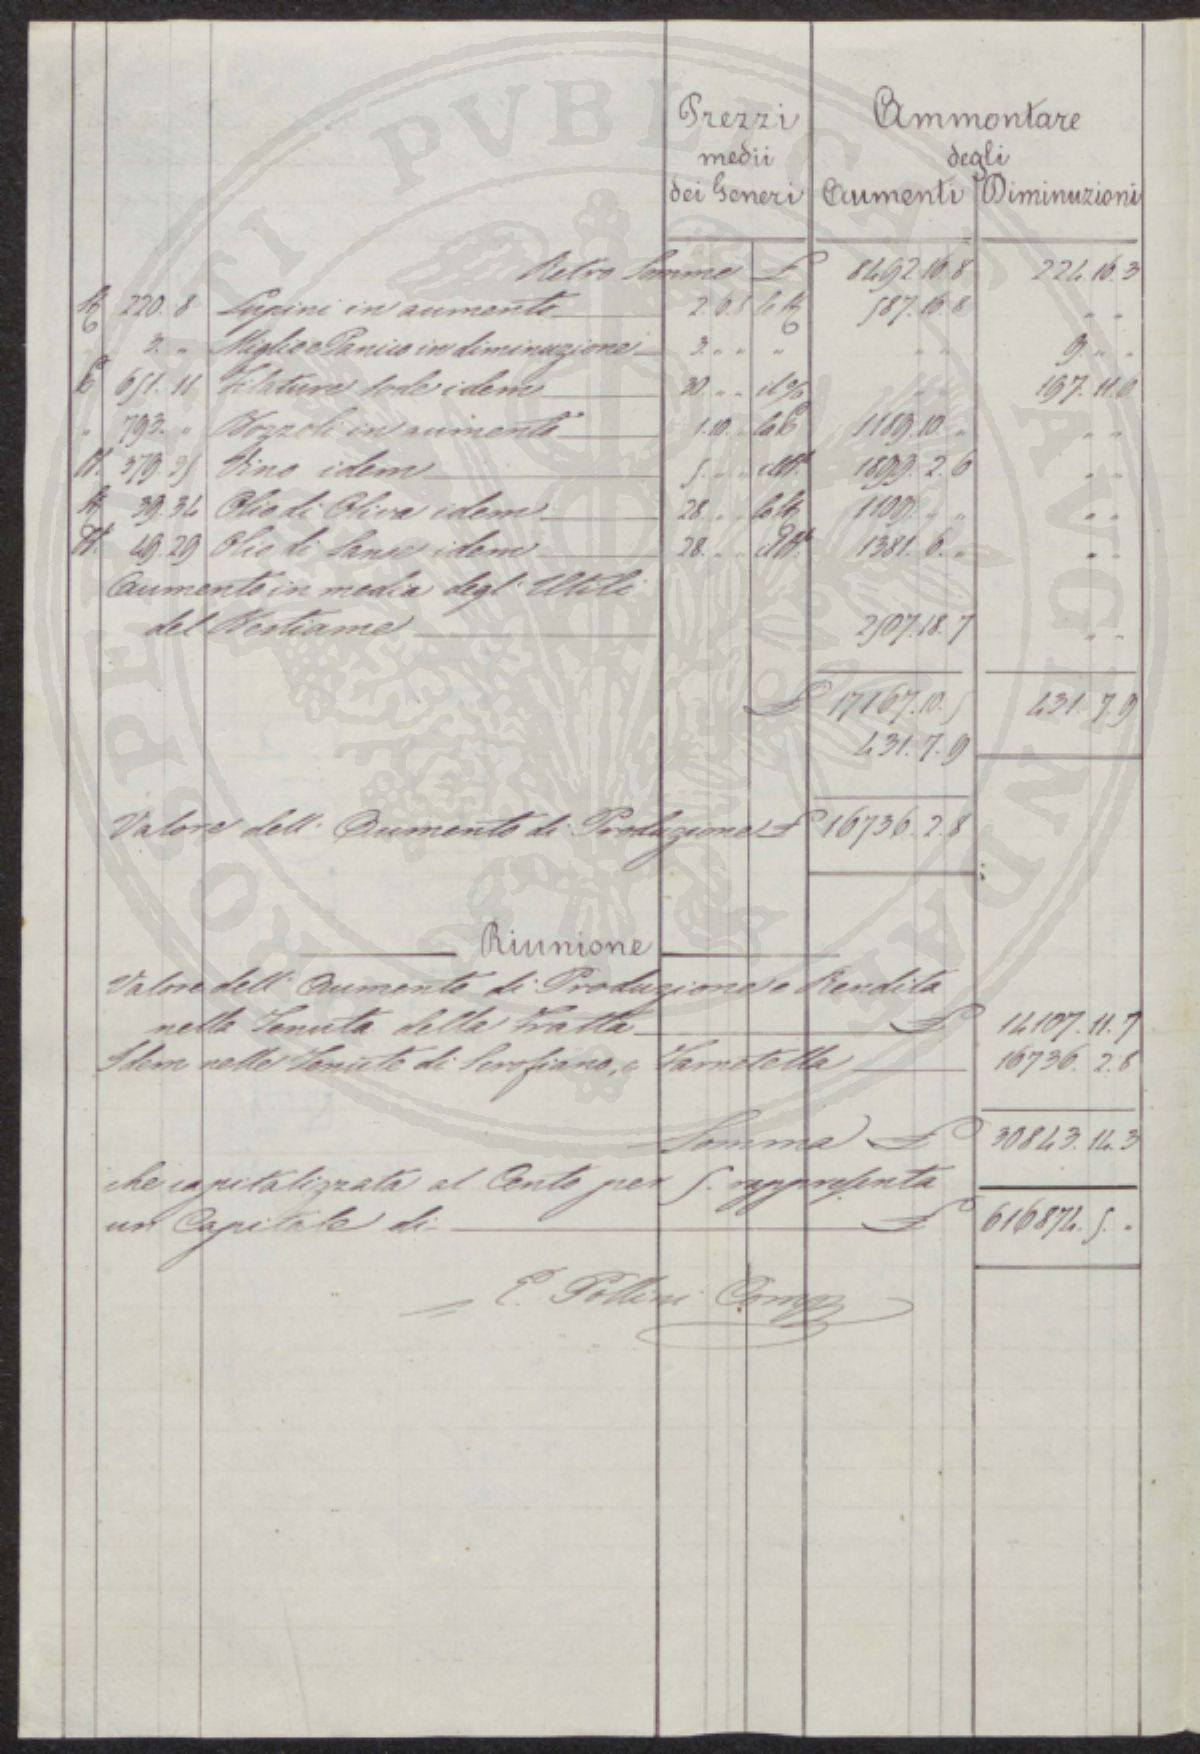 Prezzi medii dei Generi
Ammontare degli
Aumenti Diminuzioni
Retro Somme £ 8492.16.8 224.16.3
220.8 Lupini in aumento 2.6.8 587.16.8 " "
" 3. " Miglio e Panico in diminuzione 3. " " " " " 9. " "
651.11 Filature sode idem 30. " " il % " " 197.11.6
" 793. " Bozzoli in aumento 1.10. " la 1189.10. " " "
379.35 Vino idem 5. " " 1899.2.6 " "
39.34 Olio di Oliva idem 28. " " 1109. " " " "
49.29 Olio di Sanse idem 28. " " 1381.6. " " "
Aumento in media degl'Utili
del Bestiame 2507.18.7 " "
£ 17167.10.5 431.7.9
431.7.9
Valore dell'Aumento di Produzione £ 16736.2.8
Riunione
Valore dell'Aumento di Produzione e Rendita
nella Tenuta della Fratta £ 14107.11.7
Idem nelle Tenute di Scrofiano, e Farnetella 16736.2.8
Somma £ 30843.14.3
che capitalizzata al Cento per 5. rappresenta
un Capitale di £ 616874.5. "
E. Pollini Comp